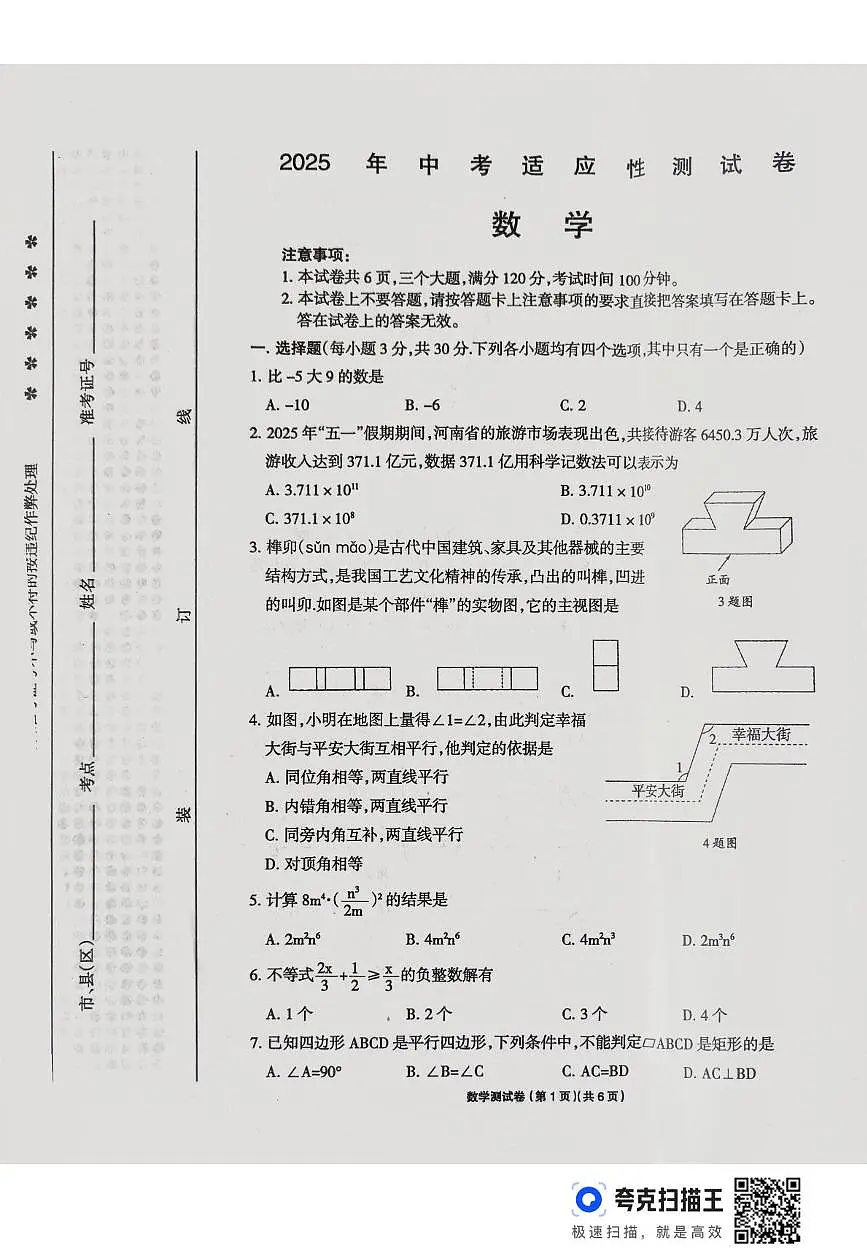 2025 年 中 考 适 应 性 测 试 卷
数 学
注意事项：
1. 本试卷共 6 页，三个大题，满分 120 分，考试时间 100 分钟。
2. 本试卷上不要答题，请按答题卡上注意事项的要求直接把答案填写在答题卡上。
答在试卷上的答案无效。
一. 选择题(每小题 3 分，共 30 分.下列各小题均有四个选项，其中只有一个是正确的)
1. 比 –5 大 9 的数是
A. –10 B. –6 C. 2 D. 4
2. 2025 年“五一”假期期间，河南省的旅游市场表现出色，共接待游客 6450.3 万人次，旅
游收入达到 371.1 亿元，数据 371.1 亿用科学记数法可以表示为
A. 3.711 × 10¹¹ B. 3.711 × 10¹⁰
C. 371.1 × 10⁸ D. 0.3711 × 10⁹
3. 榫卯(sǔn mǎo)是古代中国建筑、家具及其他器械的主要
结构方式，是我国工艺文化精神的传承，凸出的叫榫，凹进
的叫卯.如图是某个部件“榫”的实物图，它的主视图是
正面
3 题图
A. B. C. D.
4. 如图，小明在地图上量得∠1=∠2，由此判定幸福
大街与平安大街互相平行，他判定的依据是
A. 同位角相等，两直线平行
B. 内错角相等，两直线平行
C. 同旁内角互补，两直线平行
D. 对顶角相等
2 幸福大街
1
平安大街
4 题图
5. 计算 8m⁴·(n³/2m)² 的结果是
A. 2m²n⁶ B. 4m²n⁶ C. 4m²n³ D. 2m³n⁶
6. 不等式 2x/3 + 1/2 ≥ x/3 的负整数解有
A. 1 个 B. 2 个 C. 3 个 D. 4 个
7. 已知四边形 ABCD 是平行四边形，下列条件中，不能判定▱ABCD 是矩形的是
A. ∠A=90° B. ∠B=∠C C. AC=BD D. AC⊥BD
数学测试卷 (第 1 页)(共 6 页)
市、县(区) 考点 姓名 准考证号
装 订 线
夸克扫描王
极速扫描，就是高效